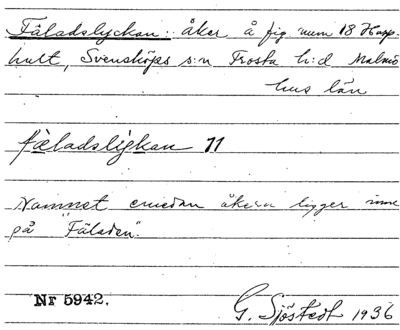 Fäladslyckan: åker å fig num 18 Happ-
hult, Svensköps s:n Frosta h:d Malmö
hus län
fæladslykan 11
Namnet emedan åkern ligger inne
på "Fäladen".
Nr 5942. G. Sjöstedt 1936